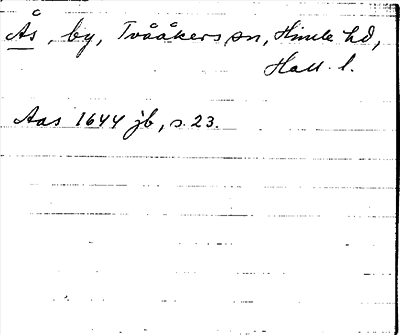 Ås, by, Tvååkers sn, Himle hd,
Hall. l.
Aas 1644 jb, s. 23.